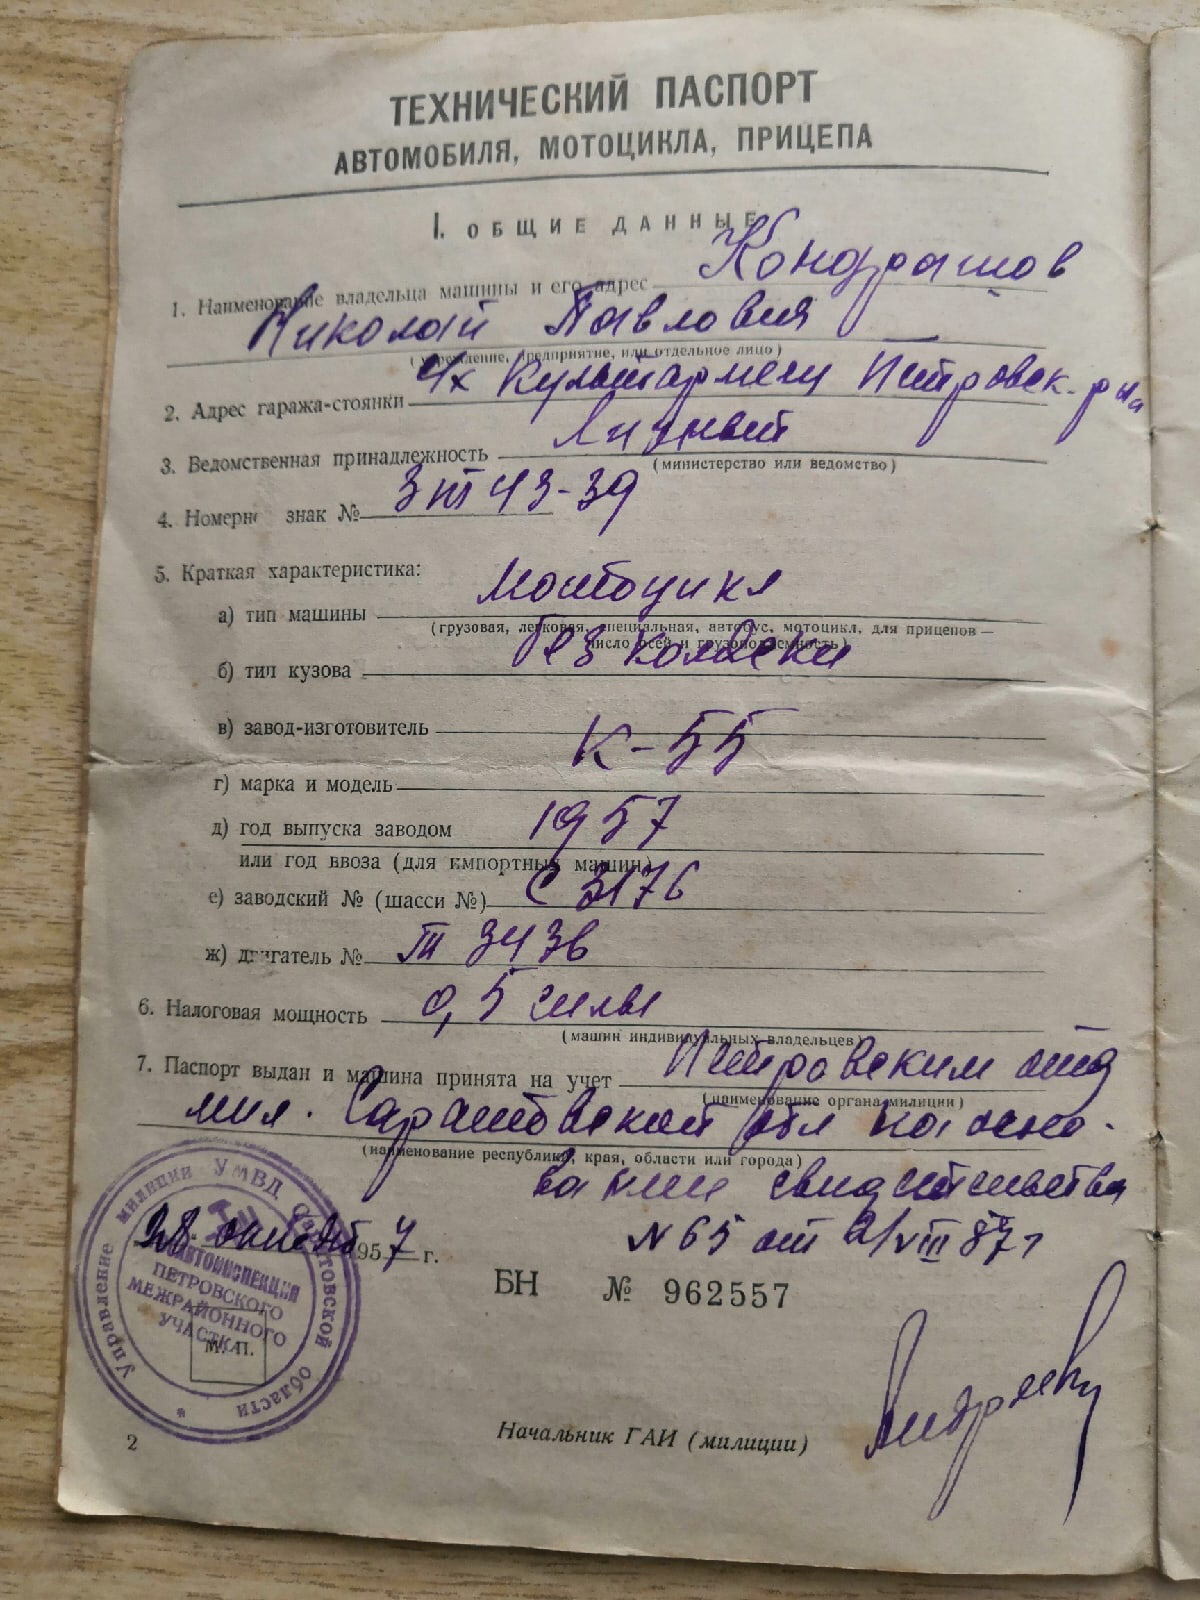 ТЕХНИЧЕСКИЙ ПАСПОРТ
АВТОМОБИЛЯ, МОТОЦИКЛА, ПРИЦЕПА
I. ОБЩИЕ ДАННЫЕ
1. Наименование владельца машины и его адрес Кондрашов
Николай Павлович
(учреждение, предприятие, или отдельное лицо)
2. Адрес гаража-стоянки с/х Культармеец Петровск. р-на
3. Ведомственная принадлежность Личный
(министерство или ведомство)
4. Номерн знак № 43-39
5. Краткая характеристика:
а) тип машины Мотоцикл
(грузовая, легковая, специальная, автобус, мотоцикл, для прицепов —
число осей и грузоподъемность)
б) тип кузова без коляски
в) завод-изготовитель
г) марка и модель К-55
д) год выпуска заводом 1957
или год ввоза (для импортных машин)
е) заводский № (шасси №) С 3176
ж) двигатель №
6. Налоговая мощность 0,5 силы
(машин индивидуальных владельцев)
7. Паспорт выдан и машина принята на учет Петровским отд
(наименование органа милиции)
мил. Саратовской обл на осно-
(наименование республики, края, области или города)
вании свидетельства
28 октяб 1957 г.
N 65 от
БН № 962557
Управление милиции УМВД Саратовской области
ГОСАВТОИНСПЕКЦИЯ
ПЕТРОВСКОГО
МЕЖРАЙОННОГО
УЧАСТКА
М. П.
Начальник ГАИ (милиции)
2